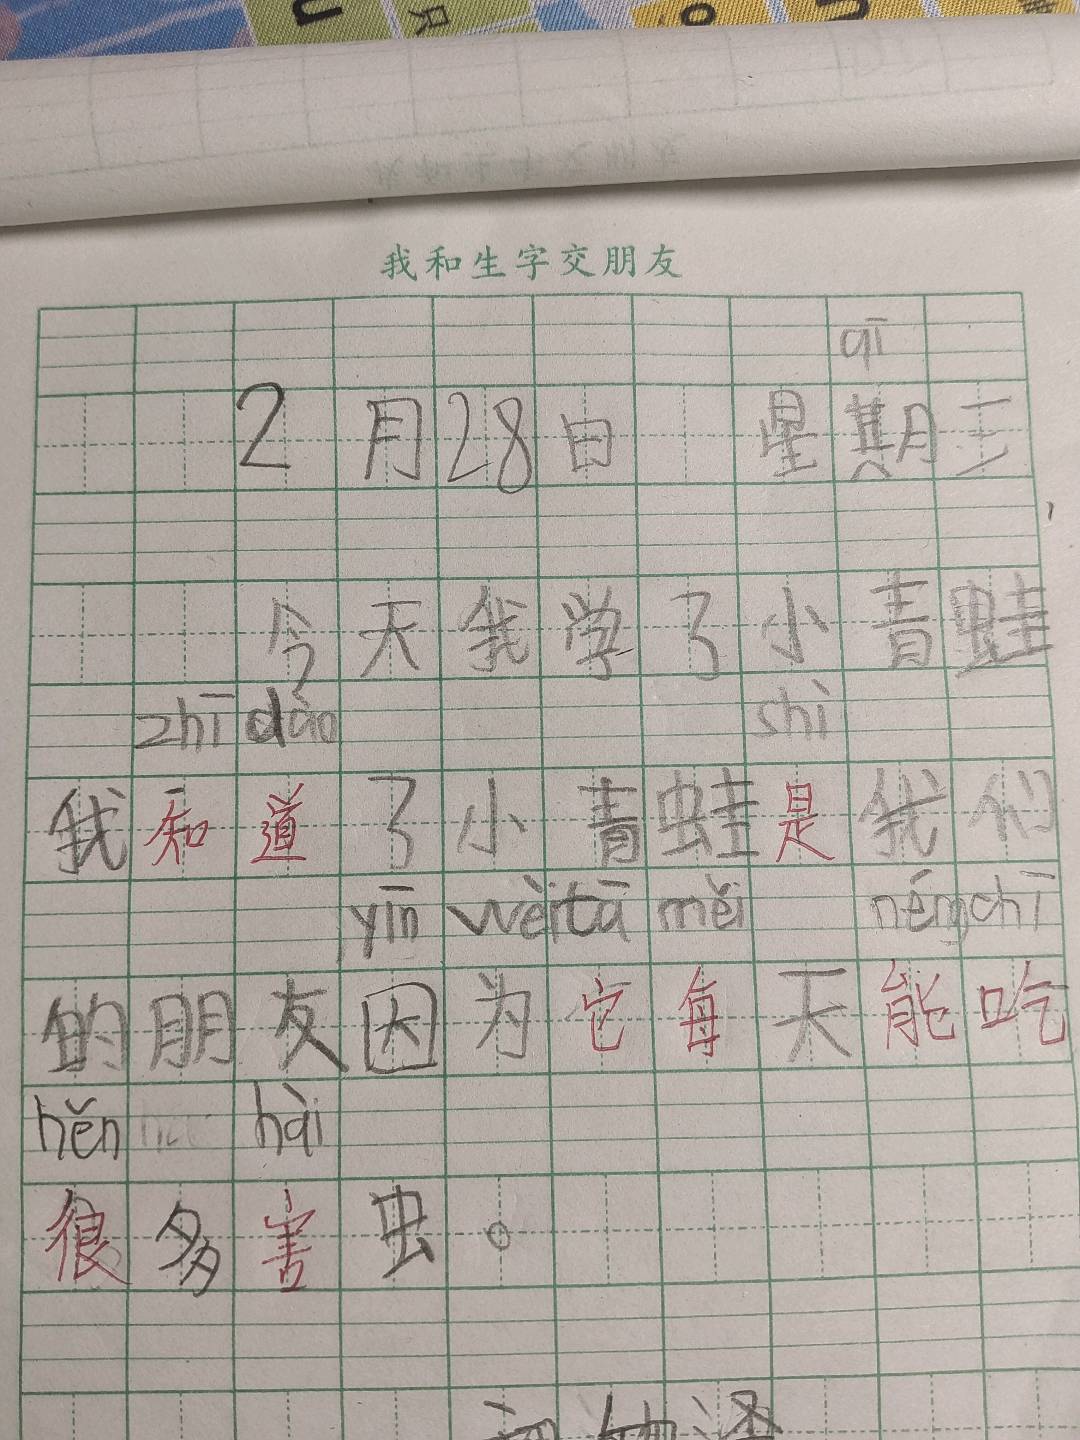 我和生字交朋友
qī
2月28日 星期三
今天我学了小青蛙
zhī dào shì
我知道了小青蛙是我们
yīn wèi tā měi néng chī
的朋友因为它每天能吃
hěn hài
很多害虫。